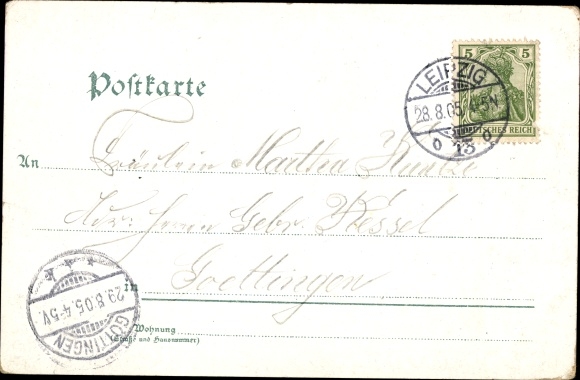 5 5
DEUTSCHES REICH
LEIPZIG
28.8.05. 4-5N
13
Postkarte
An Fräulein Martha
Adr: Herrn Gebr. Wessel
in Goettingen
29.8.05.4-5V.
GÖTTINGEN
Wohnung
(Straße und Hausnummer)